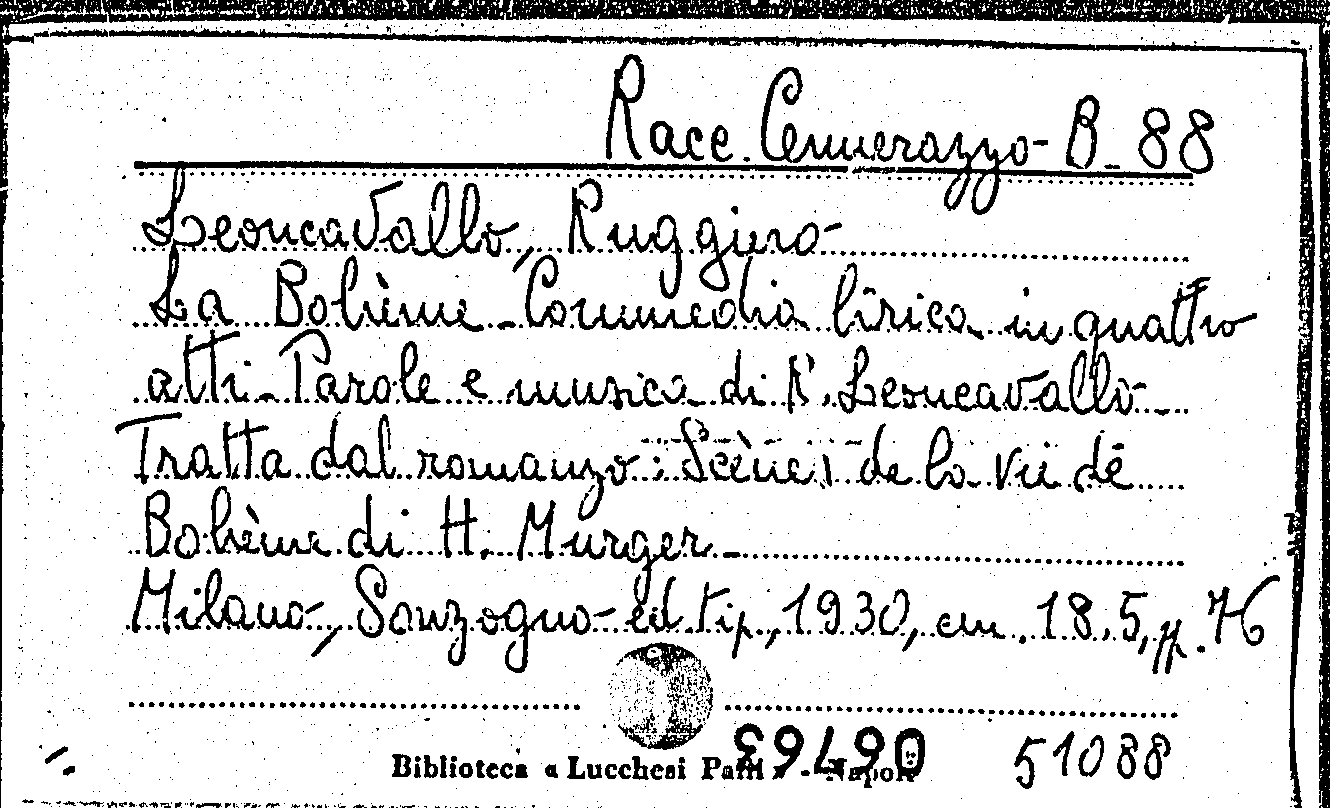 Racc. Cennerazzo - B - 88
Leoncavallo, Ruggiero
La Bohème - Commedia lirica in quattro
atti - Parole e musica di R. Leoncavallo -
Tratta dal romanzo: Scènes de la vie de
Bohème di H. Murger -
Milano, Sonzogno ed tip, 1930, cm. 18.5, pp. 76
Biblioteca « Lucchesi Palli » - Napoli
51088